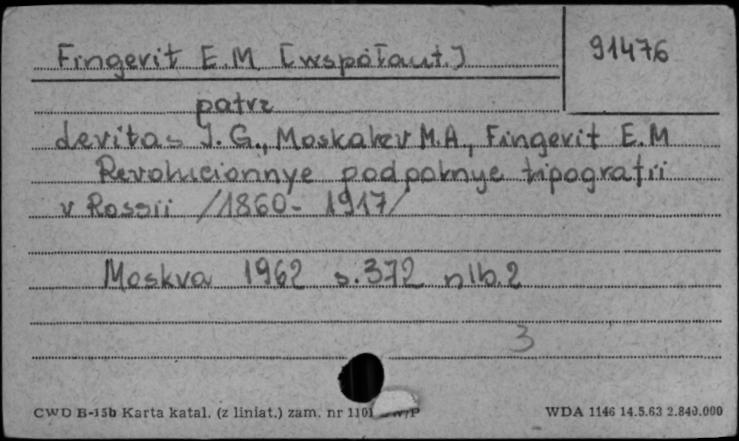 Fingerit E.M. [współaut.]
91476
patrz
Levitas J.G., Moskalev M.A., Fingerit E.M
Revolucionnye podpolnye tipografii
v Rossii /1860- 1917/
Moskva 1962 s.372 nlb.2
3
CWD B-15b Karta katal. (z liniat.) zam. nr 1101 W/P
WDA 1146 14.5.63 2.840.000